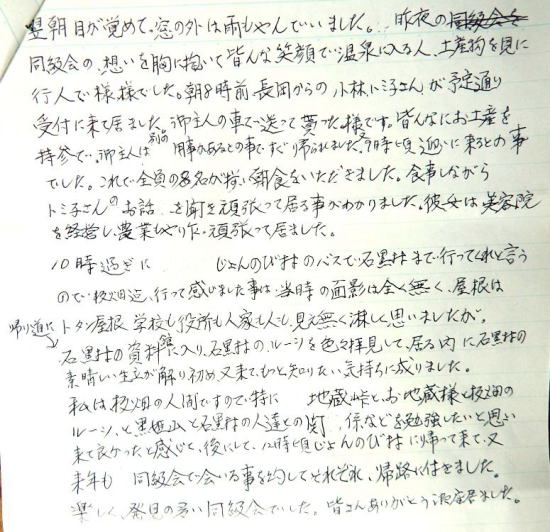 翌朝目が覚めて、窓の外は雨もやんでいました。昨夜の
同級会の、想いを胸に抱いて皆んな笑顔で温泉に入る人、土産物を見に
行く人で様様でした。朝8時前長岡からの小林トミ子さんが予定通り
受付に来て居ました。御主人の車で送って貰った様です。皆んなにお土産を
持参で、御主人は別の用事があるとの事ですぐ帰られました。9時頃迎いに来るとの事
でした。これで全員の8名が揃い朝食をいただきました。食事しながら
トミ子さんのお話を聞き頑張って居る事がわかりました。彼女は美容院
を経営し、農業もやり 頑張って居ました。
10時過ぎに じょんのび村のバスで石黒村まで行ってくれと言う
ので板畑迄、行って感じました事は、当時の面影は全く無く、屋根は
トタン屋根、学校も役所も人家も人も、見え無く淋しく思いましたが、
帰り道に石黒村の資料館に入り、石黒村の、ルーツを色々拝見して、居る内に石黒村の
素晴しい生立が解り初め、又来て、もっと知りたい気持ちに成りました。
私は、板畑の人間ですので特に 地蔵峠とお地蔵様と板畑の
ルーツ、と黒姫山と石黒村の人達との 係などを勉強したいと思い
来て良かったと感じて、後にして、12時頃じょんのび村に帰って来て、又
来年も 同級会で会いる事を約してそれぞれ、帰路に付きました。
楽しく、発見の多い同級会でした。皆さんありがとう